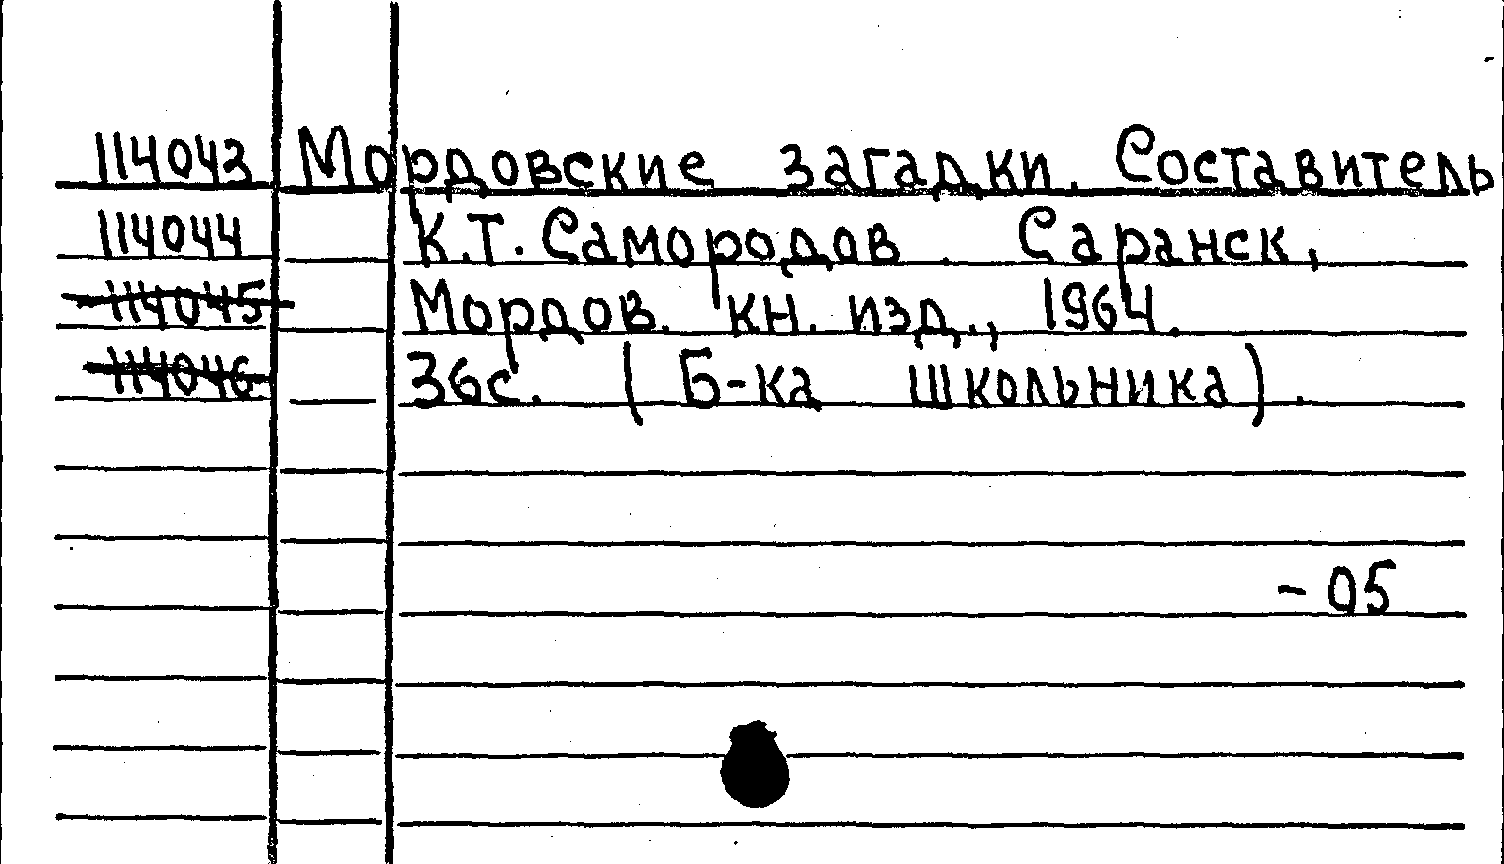 114043 Мордовские загадки. Составитель
114044 К.Т. Самородов. Саранск,
114045 Мордов. кн. изд., 1964.
114046 36с. (Б-ка школьника).
- 05